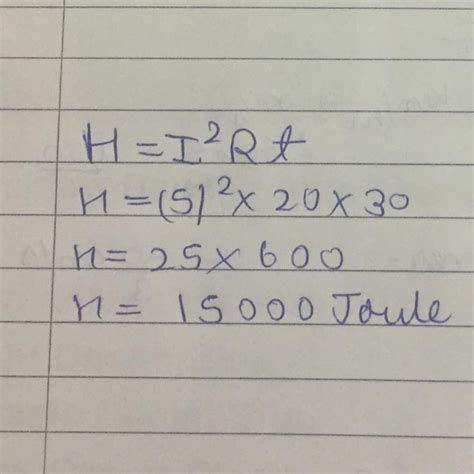 H = I²Rt
H = (5)² × 20 × 30
H = 25 × 600
H = 15000 Joule